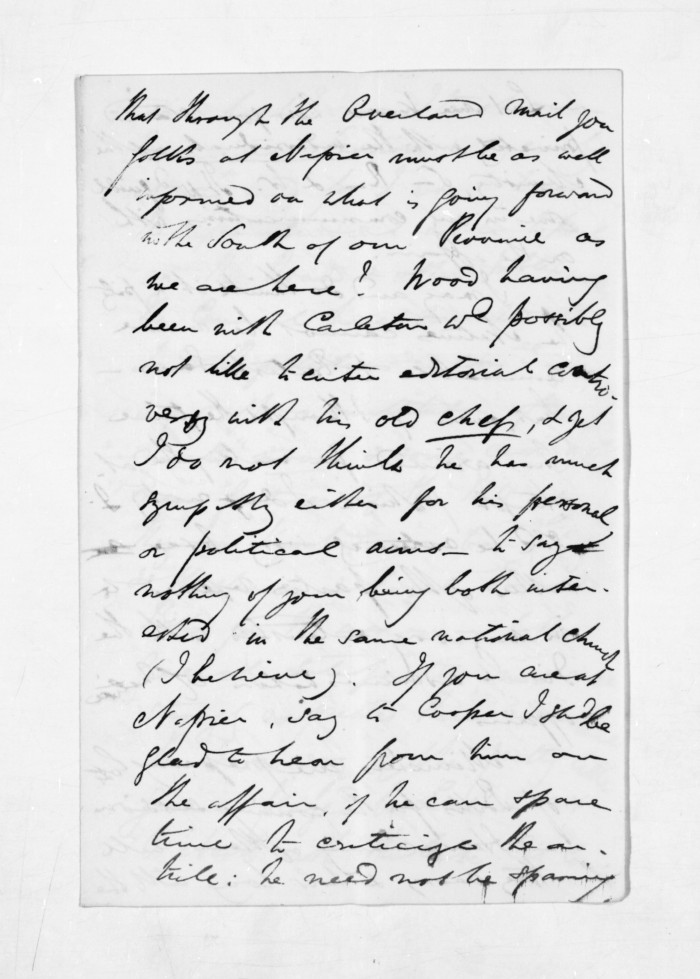 that through the Overland Mail you
folks at Napier must be as well
informed on what is going forward
in the South of our Province as
we are here! Wood having
been with Carleton wd possibly
not like to enter editorial contro-
versy with his old chef, & yet
I do not think he has much
sympathy either for his personal
or political aims – to say
nothing of your being both inter-
ested in the same national church
(I believe). If you are at
Napier, say to Cooper I shd be
glad to hear from him on
the affair, if he can spare
time to criticize the ar-
ticle: he need not be sparing